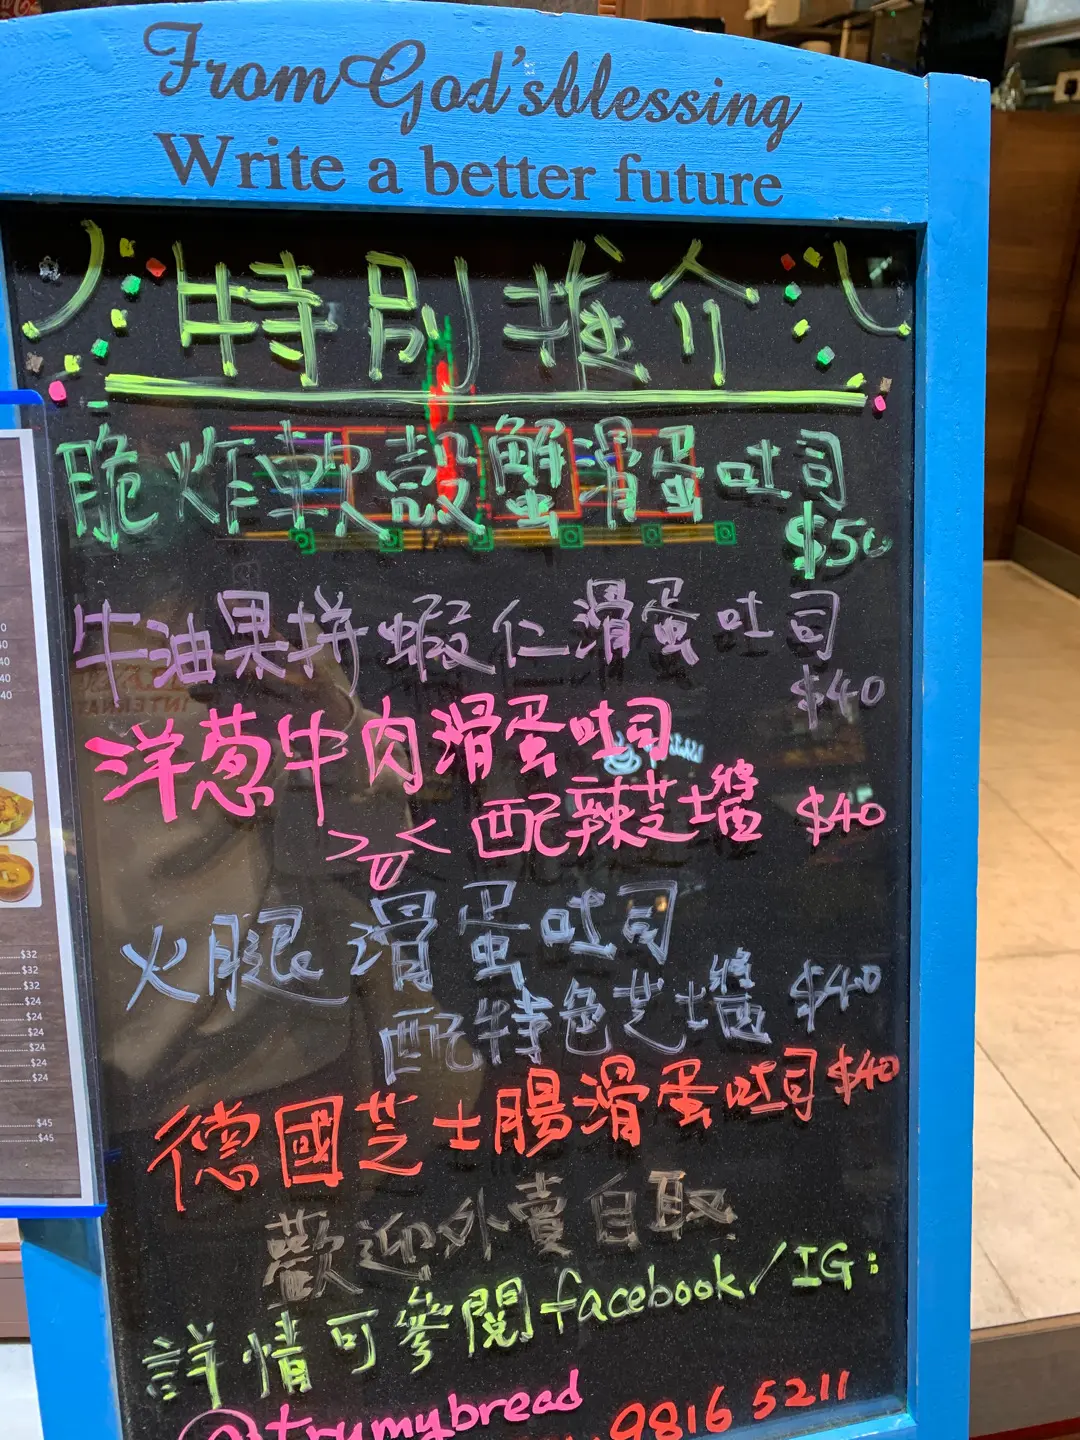 From God's blessing
Write a better future
特別推介
脆炸軟殼蟹滑蛋吐司
$50
牛油果拼蝦仁滑蛋吐司
$40
洋葱牛肉滑蛋吐司
配辣芝士醬 $40
火腿滑蛋吐司
配特色芝士醬 $40
德國芝士腸滑蛋吐司 $40
歡迎外賣自取
詳情可參閱facebook/IG:
@trymybread
9816 5211
$32
$32
$32
$24
$24
$24
$24
$24
$24
$45
$45